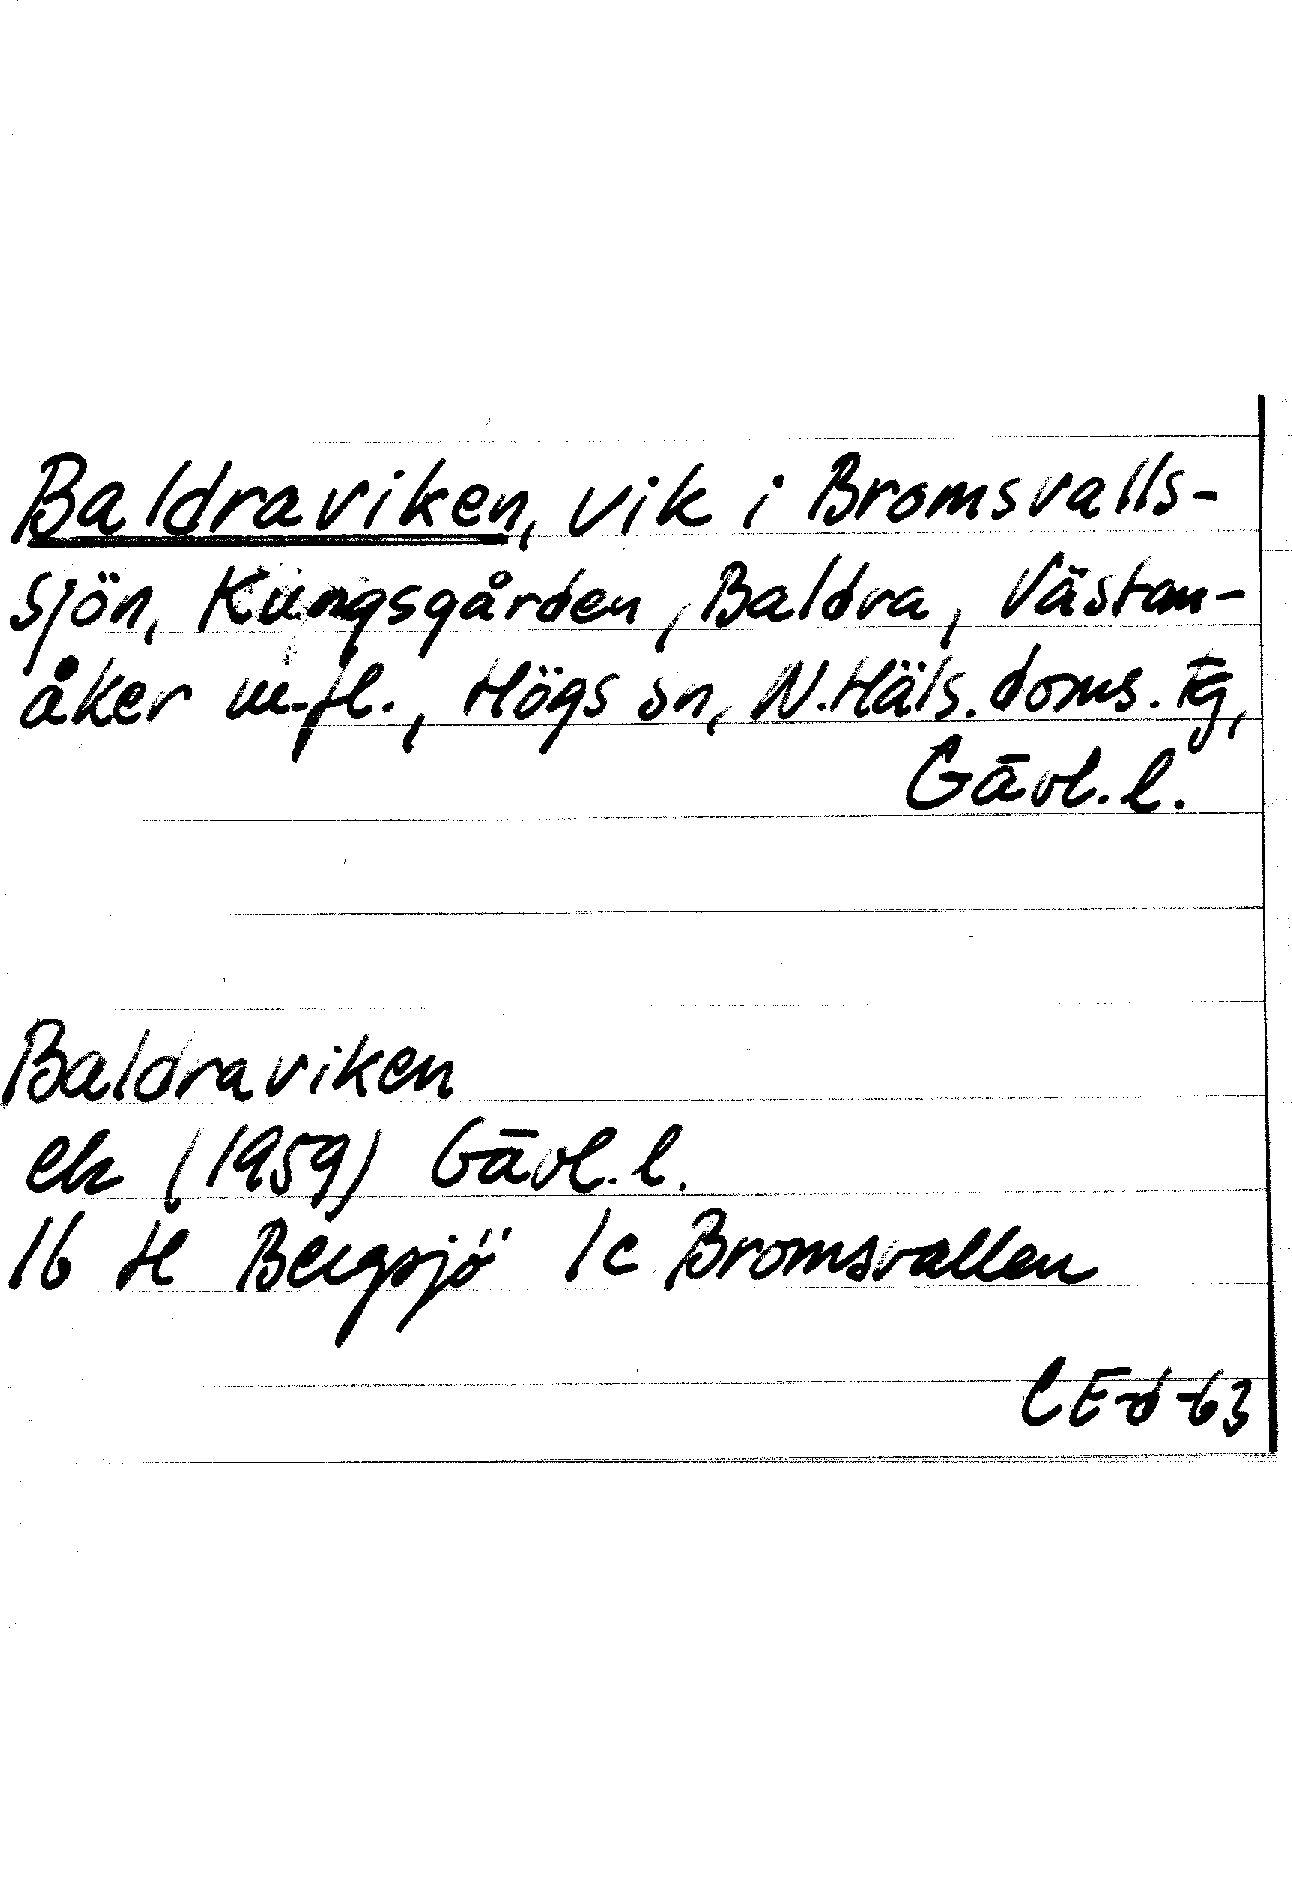 Baldraviken, vik i Bromsvalls-
sjön, Kungsgården, Baldra, Västan-
åker m.fl., Högs sn, N.Häls.doms.tg,
Gävl.l.
Baldraviken
ek (1959) Gävl.l.
16 H Bergsjö 1c Bromsvallen
CE-ö-63